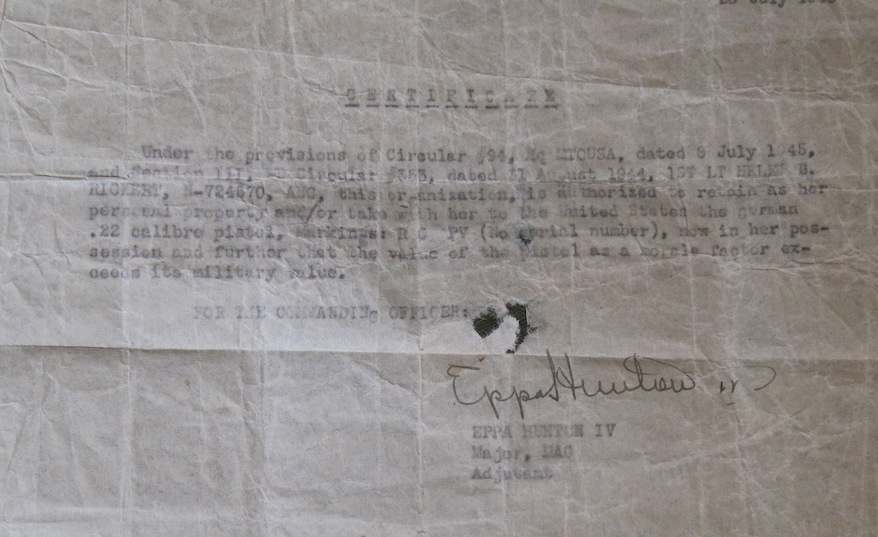 July
CERTIFICATE
Under the provisions of Circular #94, Hq MTOUSA, dated 8 July 1945,
and Section III, Circular #353, dated 31 August 1944, 1ST LT HELEN
N-724670, ANC, this organization, is authorized to retain as her
personal property and/or take with her to the United States the german
.22 calibre pistol, markings: R G PV (No serial number), now in her pos-
session and further that the value of the pistol as a morale factor ex-
ceeds its military value.
FOR THE COMMANDING OFFICER:
Eppa Hunton IV
EPPA HUNTON IV
Major, MAC
Adjutant